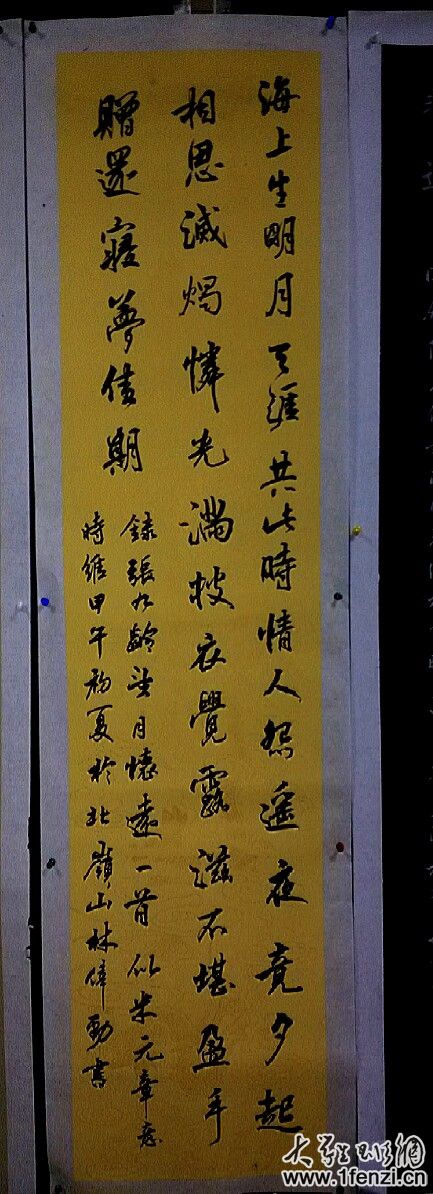 海上生明月天涯共此時情人怨遥夜竟夕起
相思滅燭憐光满披衣覺露滋不堪盈手
贈還寢夢佳期
錄張九齡望月懷遠一首以米元章意
時維甲午初夏於北嶺山林偉勁書
www.1fenzi.cn